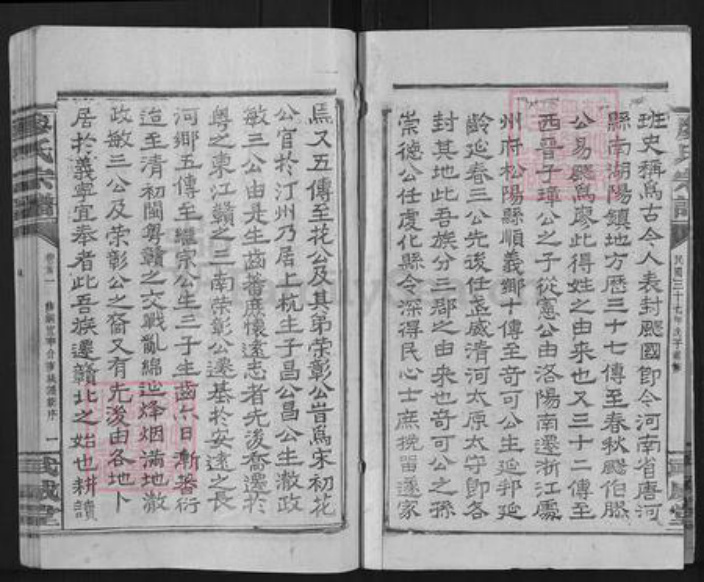 班史稱為古今人表封飂國即今河南省唐河
縣南湖陽鎮地方歷三十七傳至春秋飂伯滕
公易飂為廖此得姓之由來也又三十二傳至
西晉子璋公之子從憲公由洛陽南遷浙江處
州府松陽縣順義鄉十傳至奇可公生延邦延
齡延春三公先後任武威清河太原太守即各
封其地此吾族分三郡之由來也奇可公之孫
崇德公任虔化縣令深得民心士庶挽留遂家
焉又五傳至花公及其弟榮彰公皆為宋初花
公官於汀州乃居上杭生子昌公昌公生澈政
敏三公由是生齒蕃庶懷遠志者先後喬遷於
粵之東江贛之三南榮彰公遷基於安遠之長
河鄉五傳至繼宗公生三子生齒亦日漸蕃衍
迨至清初閩粵贛之交戰亂綿延烽烟滿地澈
政敏三公及榮彰公之裔又有先後由各地卜
居於義寧宜奉者此吾族遷贛北之始也耕讀
廖氏宗譜
卷首一
序 一
武威堂
廖氏宗譜
民國三十七年戊子
武威堂